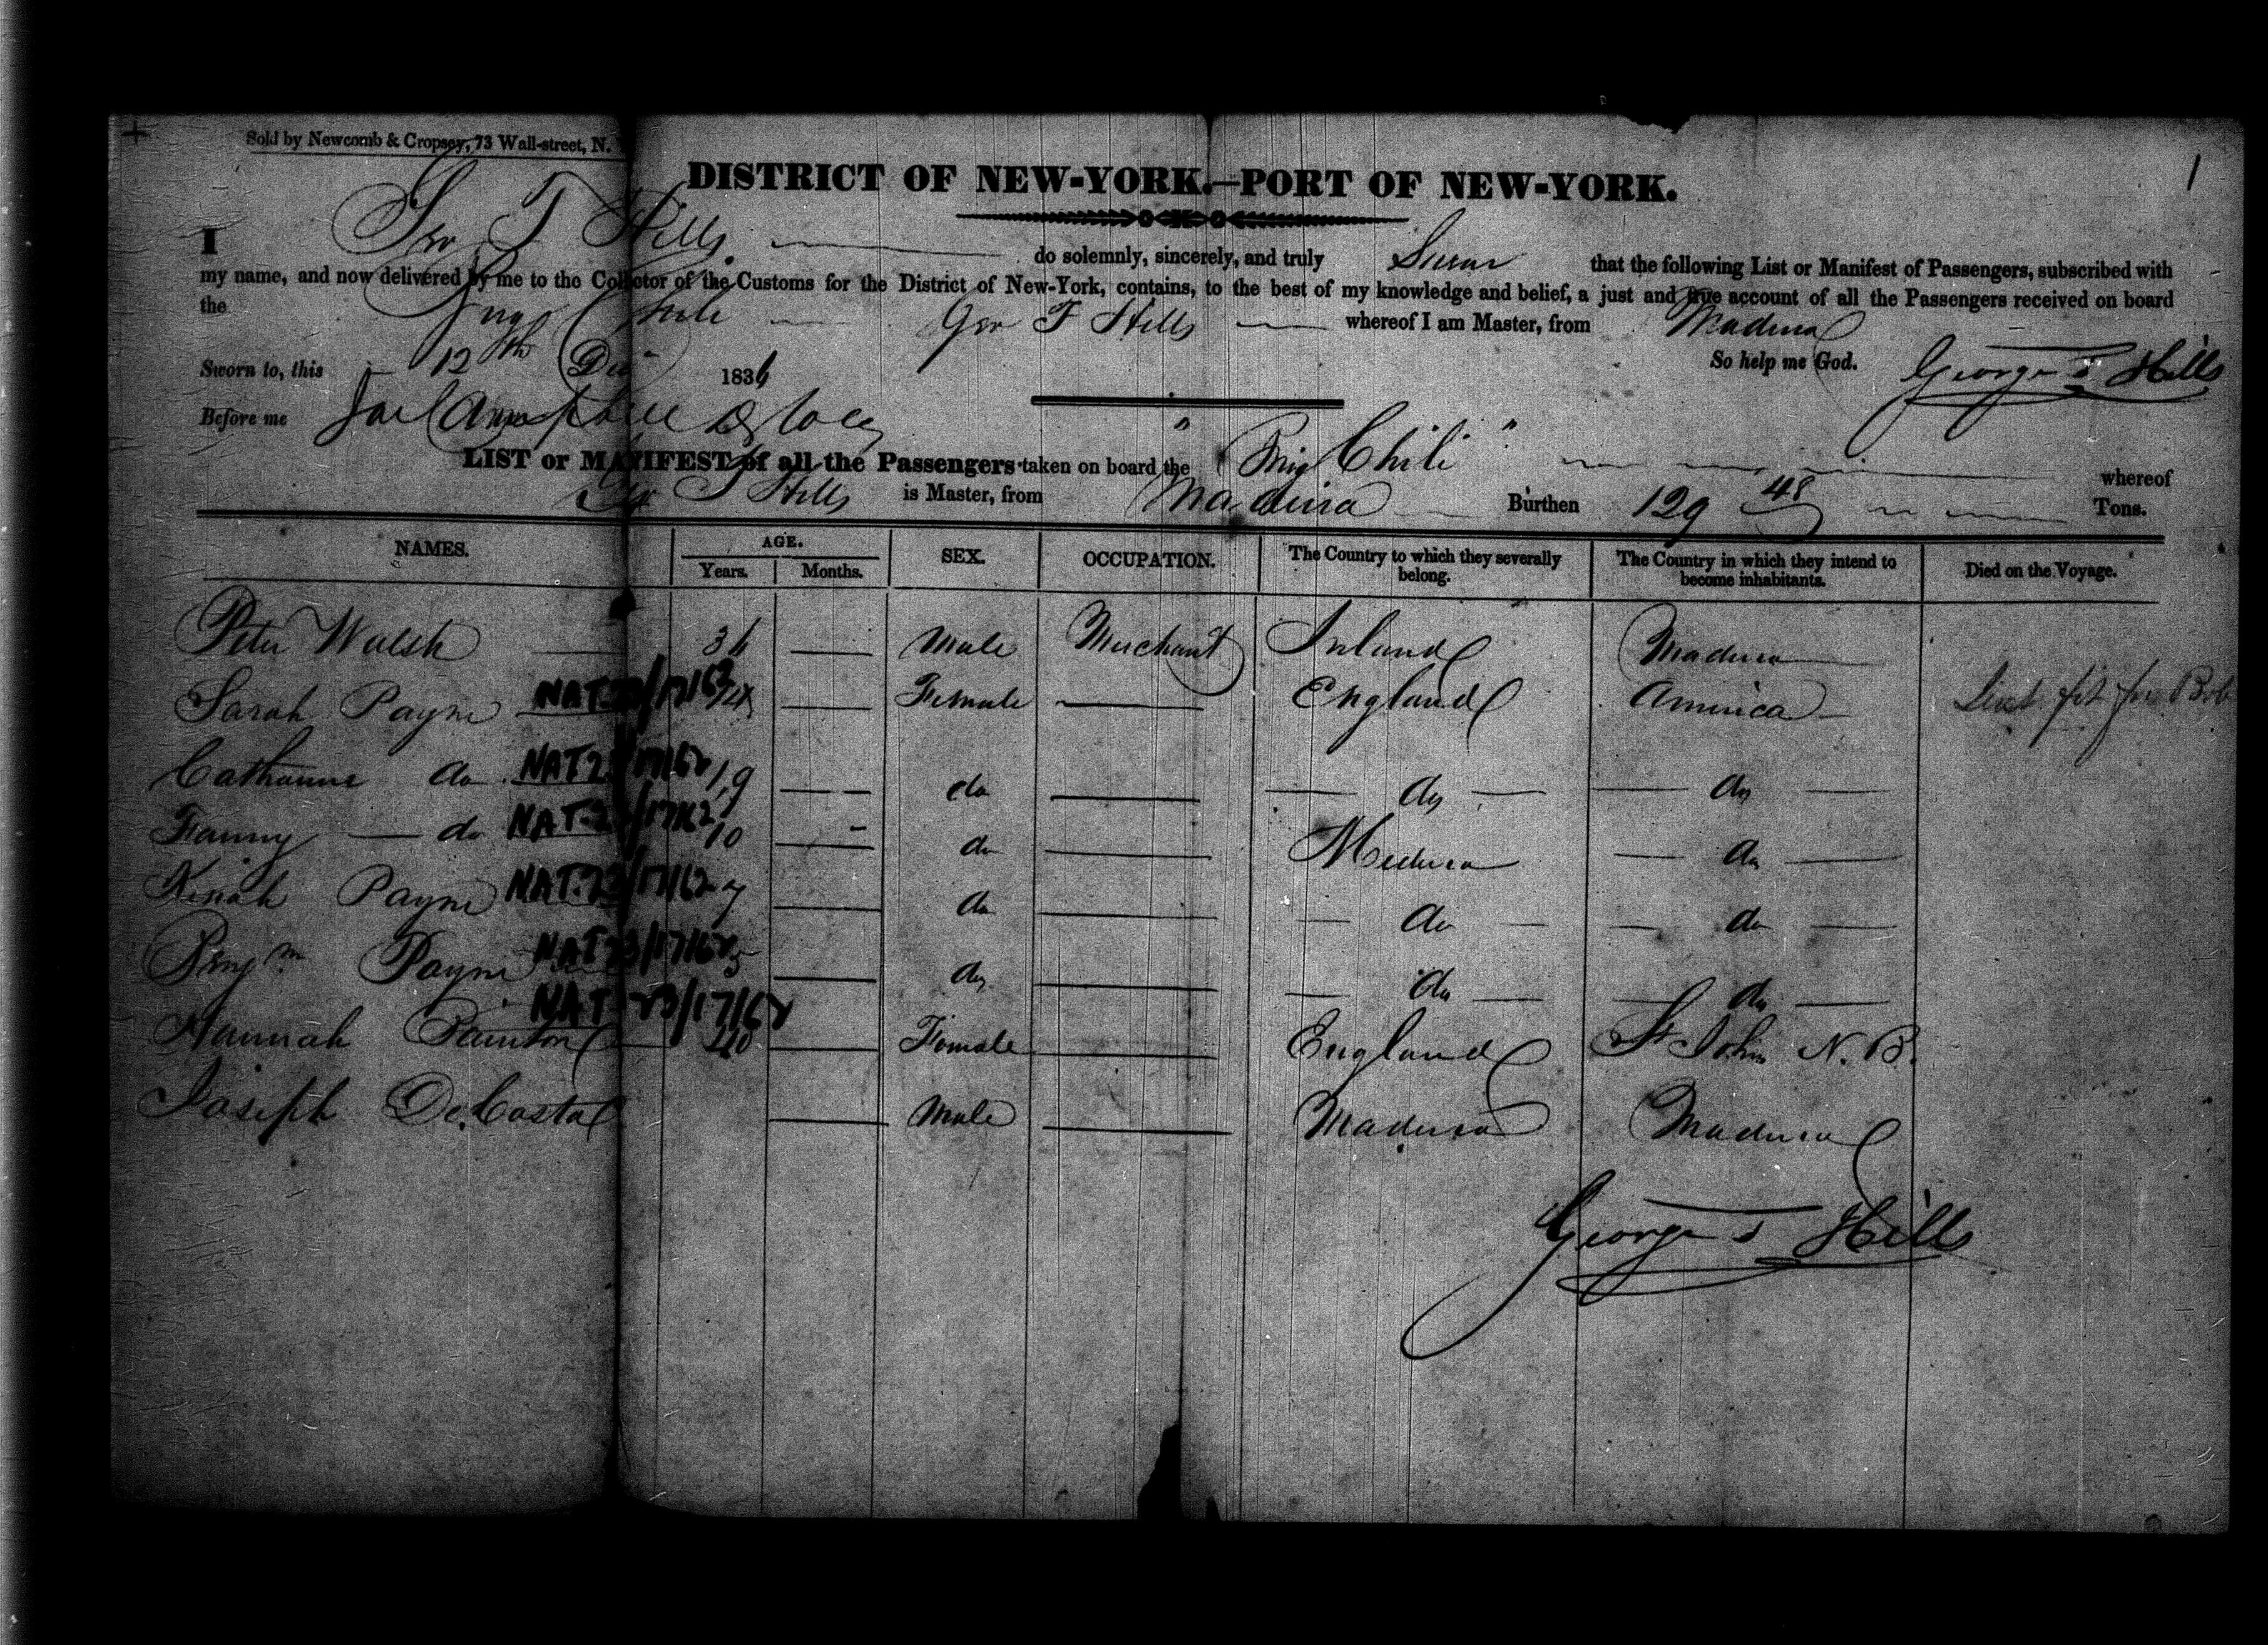 Sold by Newcomb & Cropsey, 73 Wall-street, N.
1
DISTRICT OF NEW-YORK.—PORT OF NEW-YORK.
I Geo T Hills do solemnly, sincerely, and truly Swear that the following List or Manifest of Passengers, subscribed with
my name, and now delivered by me to the Collector of the Customs for the District of New-York, contains, to the best of my knowledge and belief, a just and true account of all the Passengers received on board
the Brig Chili Geo T Hills whereof I am Master, from Madeira
Sworn to, this 12th Dec 1836 So help me God. George T Hills
Before me
LIST or MANIFEST of all the Passengers taken on board the "Brig Chili" whereof
Geo T Hills is Master, from Madeira Burthen 129 48 Tons.
NAMES. AGE. Years. Months. SEX. OCCUPATION. The Country to which they severally belong. The Country in which they intend to become inhabitants. Died on the Voyage.
Peter Walsh 36 Male Merchant Ireland Madeira
Sarah Payne NAT-23/17/62 Female England America
Catharine do NAT 23/17/62 19 do do do
Fanny do NAT-23/17/62 10 do Madeira do
Payne NAT-23/17/62 7 do do do
Benjm Payne NAT-23/17/62 5 do do do
Hannah Painton NAT-23/17/62 40 Female England St John N.B.
Joseph De Costa Male Madeira Madeira
George T Hills